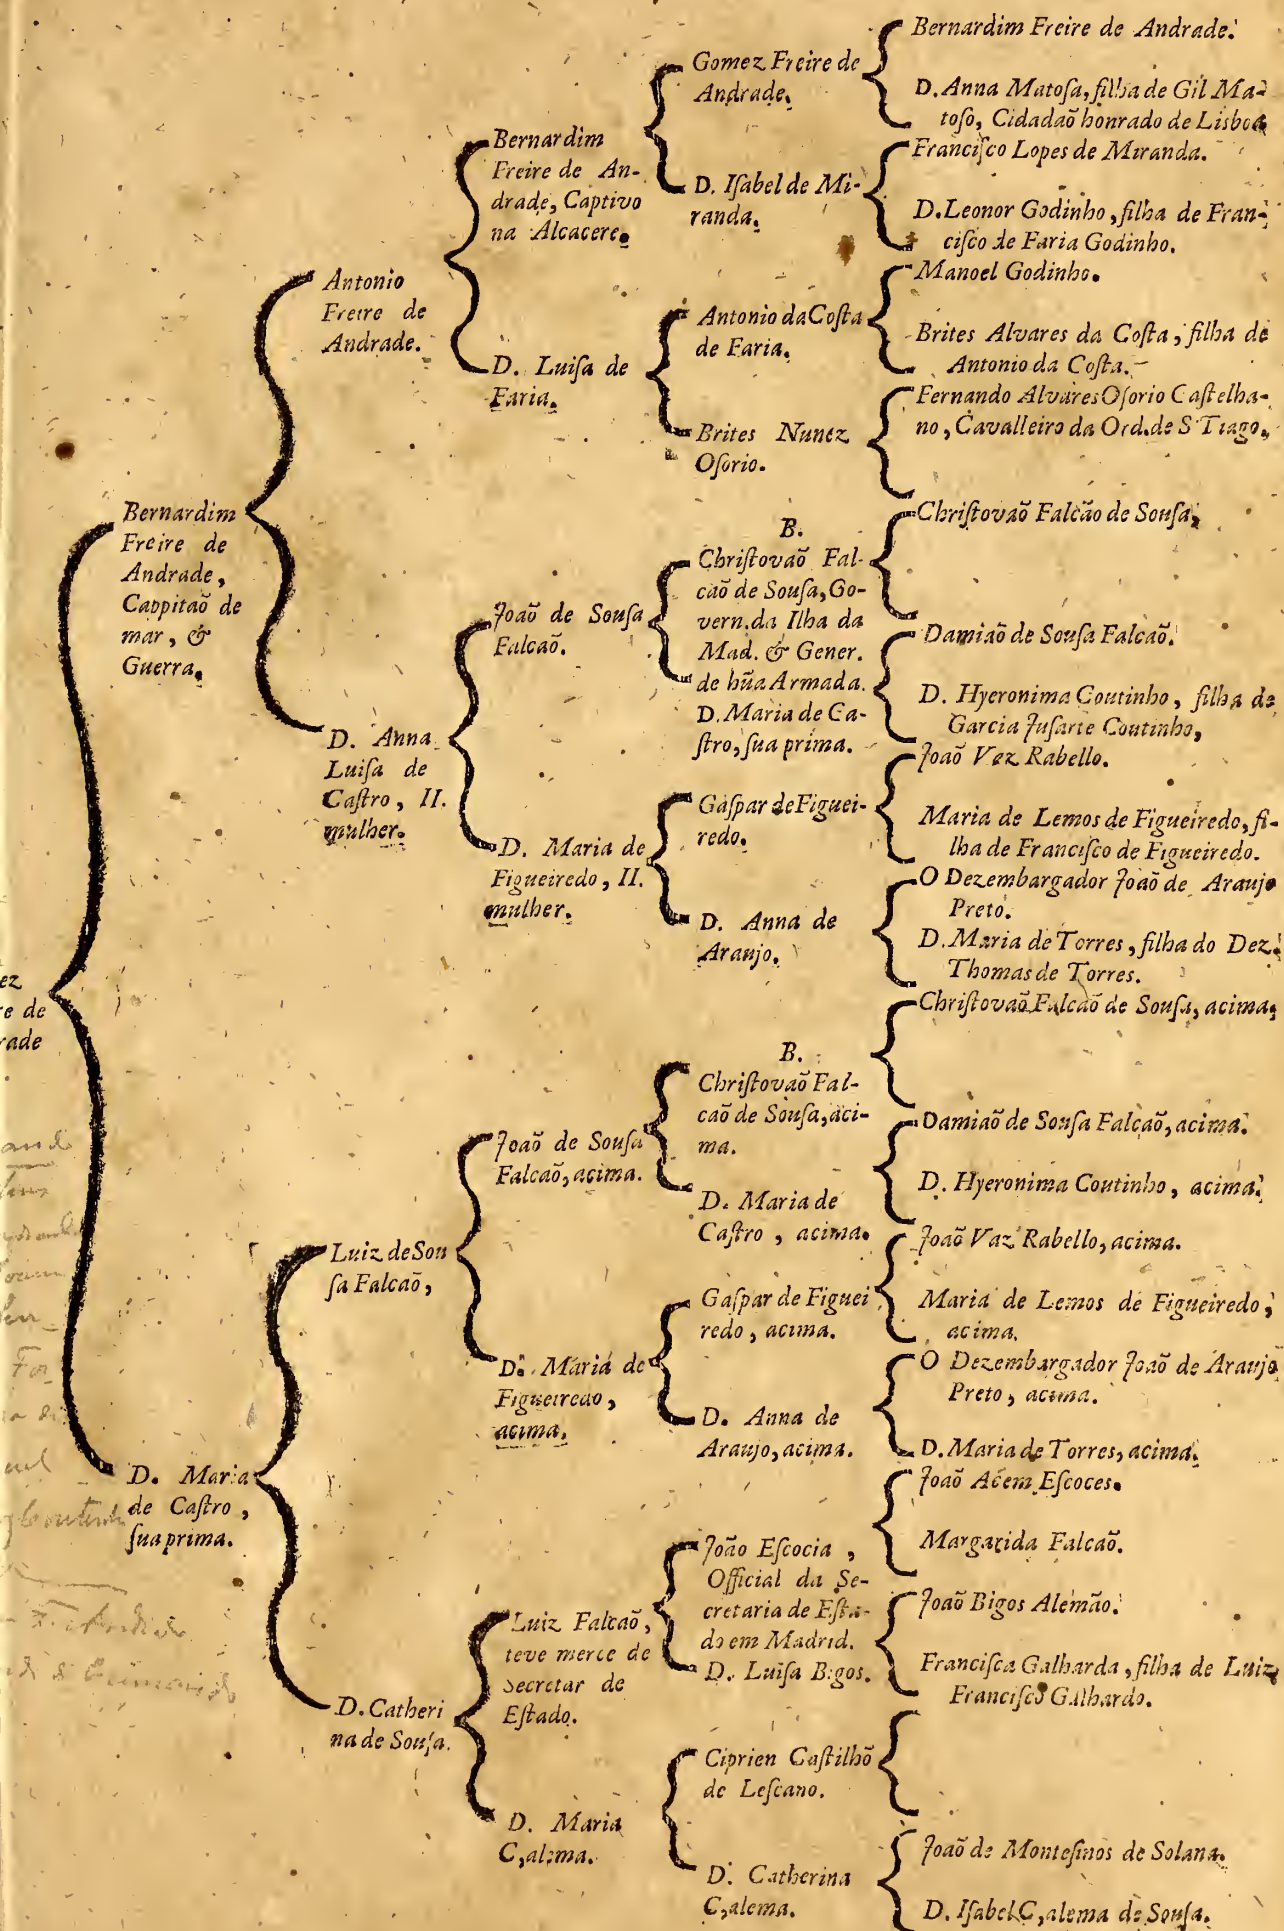 ez
e de
rade
Bernardim
Freire de
Andrade,
Cappitaõ de
mar, &
Guerra.
D. Maria
de Caſtro,
ſua prima.
Antonio
Freire de
Andrade.
D. Anna
Luiſa de
Caſtro, II.
mulher.
Luiz de Sou
ſa Falcaõ,
D. Catheri
na de Souſa.
Bernardim
Freire de An-
drade, Captivo
na Alcacere.
D. Luiſa de
Faria.
Joaõ de Souſa
Falcaõ.
D. Maria de
Figueiredo, II.
mulher.
Joaõ de Souſa
Falcaõ, acima.
D. Maria de
Figueiredo,
acima.
Luiz Falcaõ,
teve merce de
Secretar de
Eſtado.
D. Maria
C,alema.
Gomez Freire de
Andrade.
D. Iſabel de Mi-
randa.
Antonio da Coſta
de Faria.
Brites Nunez
Oſorio.
B.
Chriſtovaõ Fal-
caõ de Souſa, Go-
vern. da Ilha da
Mad. & Gener.
de hũa Armada.
D. Maria de Ca-
ſtro, ſua prima.
Gaſpar de Figuei-
redo.
D. Anna de
Araujo.
B.
Chriſtovaõ Fal-
caõ de Souſa, aci-
ma.
D. Maria de
Caſtro, acima.
Gaſpar de Figuei
redo, acima.
D. Anna de
Araujo, acima.
Joaõ Eſcocia,
Official da Se-
cretaria de Eſta-
do em Madrid.
D. Luiſa Bigos.
Ciprien Caſtilhõ
de Leſcano.
D. Catherina
C,alema.
Bernardim Freire de Andrade.
D. Anna Matoſa, filha de Gil Ma-
toſo, Cidadaõ honrado de Lisboa
Franciſco Lopes de Miranda.
D. Leonor Godinho, filha de Fran-
ciſco de Faria Godinho.
Manoel Godinho.
Brites Alvares da Coſta, filha de
Antonio da Coſta.
Fernando Alvares Oſorio Caſtelha-
no, Cavalleiro da Ord. de S Tiago.
Chriſtovaõ Falcão de Souſa,
Damiaõ de Souſa Falcaõ.
D. Hyeronima Coutinho, filha de
Garcia Juſarte Coutinho,
Joaõ Vez Rabello.
Maria de Lemos de Figueiredo, fi-
lha de Franciſco de Figueiredo.
O Dezembargador Joaõ de Araujo
Preto.
D. Maria de Torres, filha do Dez.
Thomas de Torres.
Chriſtovaõ Falcaõ de Souſa, acima,
Damiaõ de Souſa Falcaõ, acima.
D. Hyeronima Coutinho, acima.
Joaõ Vaz Rabello, acima.
Maria de Lemos de Figueiredo,
acima.
O Dezembargador Joaõ de Araujo
Preto, acima.
D. Maria de Torres, acima.
Joaõ Acem Eſcoces.
Margarida Falcaõ.
Joaõ Bigos Alemão.
Franciſca Galharda, filha de Luiz
Franciſco Galhardo.
Joaõ de Monteſinos de Solana.
D. Iſabel C,alema de Souſa.